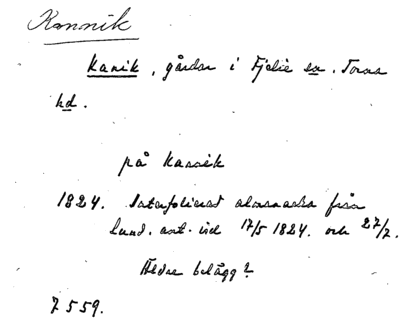 Kannik
Kanik, gårdar i Fjelie sn. Torna
hd.
på Kannik
1824. Interfolierad almanacka från
Lund. ant. vid 17/5 1824. och 27/7.
Äldre belägg?
7559.